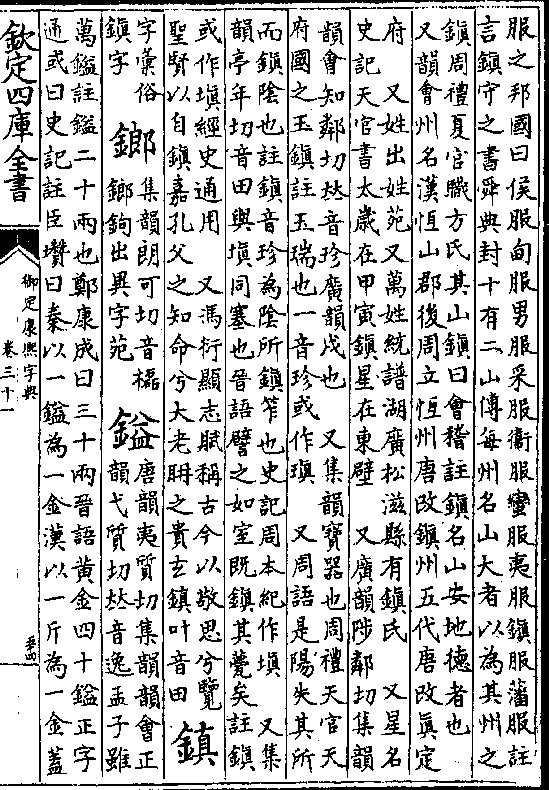 服之邦國曰侯服甸服男服采服衞服蠻服夷服鎮服藩服註
言鎮守之書舜典封十有二山傳每州名山大者以為其州之
鎮周禮夏官職方氏其山鎮曰會稽註鎮名山安地德者也
又韻會州名漢恆山郡後周立恆州唐改鎮州五代唐改真定
府　又姓出姓苑又萬姓統譜湖廣松滋縣有鎮氏　又星名
史記天官書太歲在甲寅鎮星在東壁　又廣韻陟鄰切集韻
韻會知鄰切𠀤音珍廣韻戍也　又集韻寶器也周禮天官天
府國之玉鎮註玉瑞也一音珍或作瑱　又周語是陽失其所
而鎮陰也註鎮音珍為陰所鎮笮也史記周本紀作塡　又集
韻亭年切音田與塡同塞也晉語譬之如室旣鎮其甍矣註鎮
或作塡經史通用　又馮衍顯志賦稱古今以敬思兮覽
聖賢以自鎮嘉孔父之知命兮大老聃之貴玄鎮叶音田　鎭
字彙俗
鎮字　鎯　集韻朗可切音㮰
鎯鉤出異字苑　鎰　唐韻夷質切集韻韻會正
韻弋質切𠀤音逸孟子雖
萬鎰註鎰二十兩也鄭康成曰三十兩晉語黃金四十鎰正字
通或曰史記註臣瓚曰秦以一鎰為一金漢以一斤為一金蓋
欽定四庫全書
御定康熙字典
卷三十一